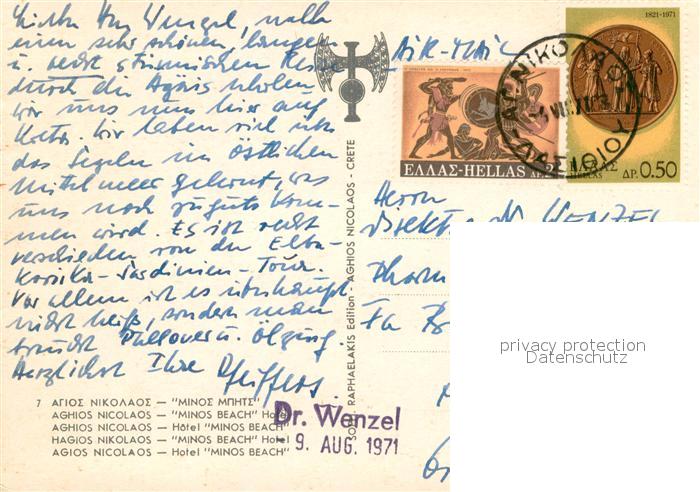 Lieber Herr Wenzel, nach
einem sehr schönen, langen
u. recht stürmischen Reise
durch die Ägäis erholen
wir uns nun hier auf
Kreta. Wir haben viel über
das Segeln im östlichen
Mittelmeer gelernt, was
uns noch zugute kom-
men wird. Es ist recht
verschieden von der Elba-
Korsika-Sardinien-Tour.
Vor allem ist es überhaupt
nicht heiß, sondern man
braucht Pullover u. Ölzeug.
Herzlichst Ihre Pfeiffers.
7 ΑΓΙΟΣ ΝΙΚΟΛΑΟΣ — "ΜΙΝΟΣ ΜΠΗΤΣ"
AGHIOS NICOLAOS — "MINOS BEACH" Hotel
AGHIOS NICOLAOS — Hôtel "MINOS BEACH"
HAGIOS NIKOLAOS — "MINOS BEACH" Hotel
AGIOS NICOLAOS — Hotel "MINOS BEACH"
RAPHAELAKIS Edition - AGHIOS NICOLAOS - CRETE
AIR-MAIL
ΕΛΛΑΣ-HELLAS
1821-1971
ΕΛΛΑΣ
HELLAS
ΔΡ. 0.50
ΑΓ. ΝΙΚΟΛΑΟΣ
ΛΑΣΙΘΙΟΥ
Herrn
Direktor Dr. WENZEL
Fa
Dr. Wenzel
9. AUG. 1971
privacy protection
Datenschutz